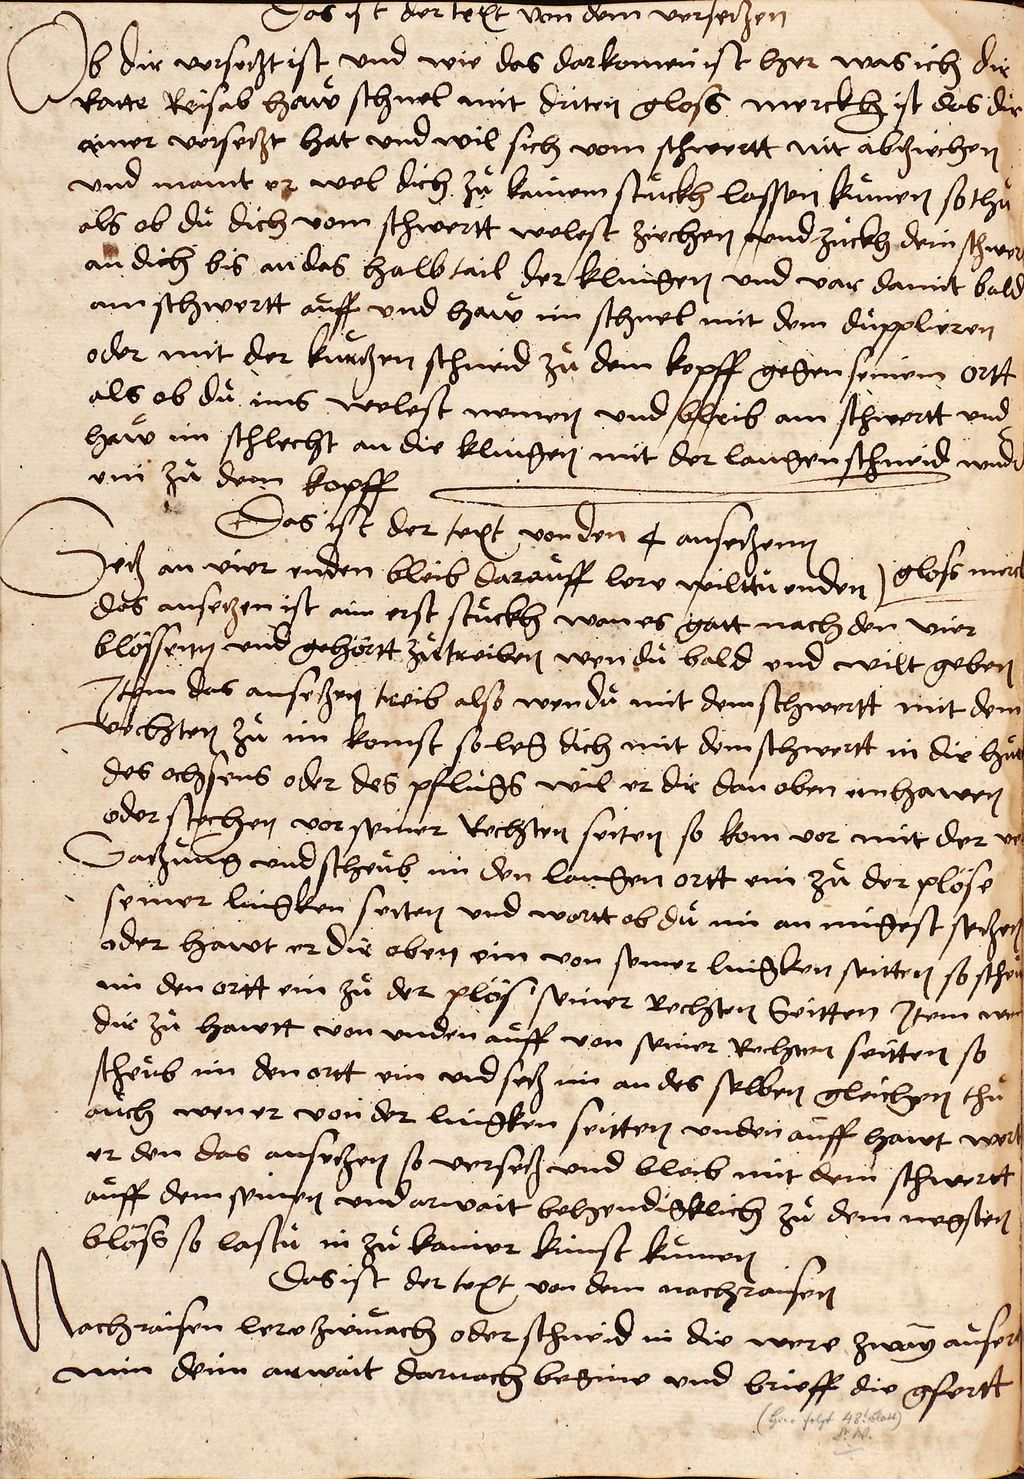 Das ist der text von dem versetzen
Ob dir versetzt ist und wie das darkomen ist her was ich dir
ratte Reisab haw schnel mit driten gloss merckh ist das dir
ainer versetzt hat und wil sich vom schwertt nit abziechen
und maint er wel dich zu kainem stuckh lassen kumen so thu
als ob du dich vom schwertt welest ziechen und zuckh dein schwert
an dich bis an das halb tail der klingen und var damit bald
am schwertt auff und haw im schnel mit dem dupplieren
oder mit der kurtzen schneid zu dem kopff gegen seinem ortt
als ob du ims welest nemen und bleib am schwertt und
haw im schlecht an die klingen mit der langen schneid wider
ein zu dem kopff
Das ist der text von den 4 ansetzenn
Setz an vier enden bleib darauff lere wiltu enden) gloss merck
das ansetzen ist ain erst stuckh wan es gatt nach den vier
blössenn und gehörtt zu treiben wen du bald end wilt geben
Item das ansetzen treib also wen du mit dem schwertt mit dem
vechten zu im komst so leg dich mit dem schwertt in die hut
des ochsens oder des pflugs wil er dir dan oben einhawen
oder stechen von seiner Rechten seiten so kom vor mit der ver
Satzung und scheub im den langen ortt ein zu der plöse
seiner lingken seiten und wartt ob du im an mügest setzen
oder hawt er dir oben ein von seiner lingken seitten so scheub
im den ortt ein zu der plös seiner Rechten Seitten Item wen
dir zu hawtt von unden auff von seiner Rechten seitten so
scheub im den ortt ein und setz im an des selben gleichen thu
auch wen er von der lingken seitten unden auff hawt wert
er den das ansetzen so versetz und bleib mit dem schwertt
auff dem seinen und arwait behendigklich zu dem negsten
blöss so lastu in zu kainer kunst kumen
Das ist der text von dem nachraisen
Nachraisen lere zwivach oder schneid in die were zway ausere
min dein arwait darnach begine und brieff die gfertt
(hier folgt 48. blatt)